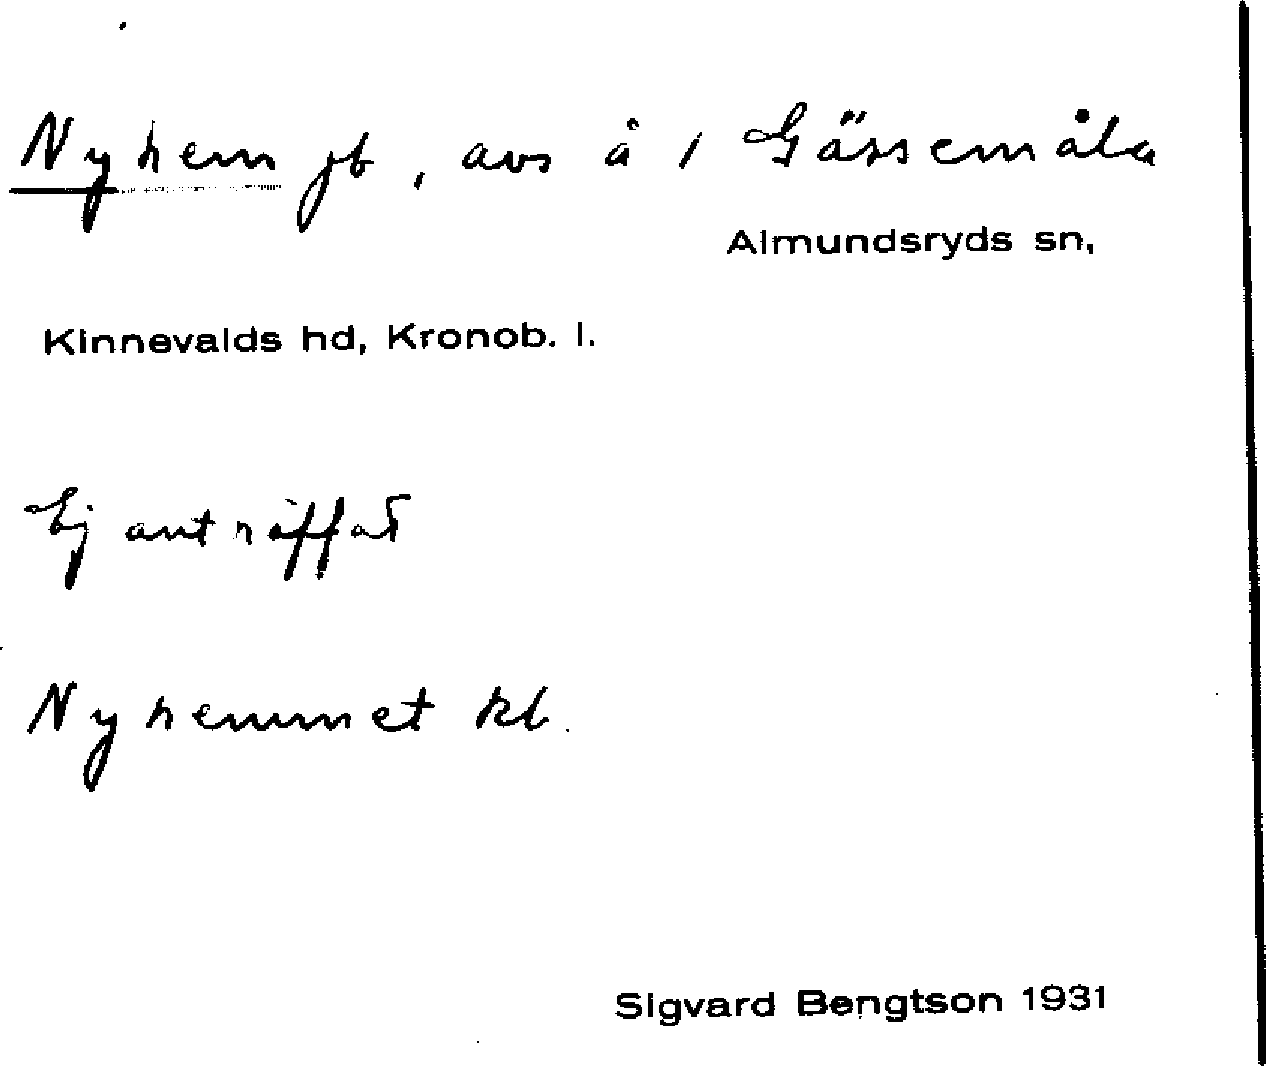 Nyhem jb, avs å 1 Gässemåla
Almundsryds sn,
Kinnevalds hd, Kronob. l.
Ej anträffat
Nyhemmet kb.
Sigvard Bengtson 1931